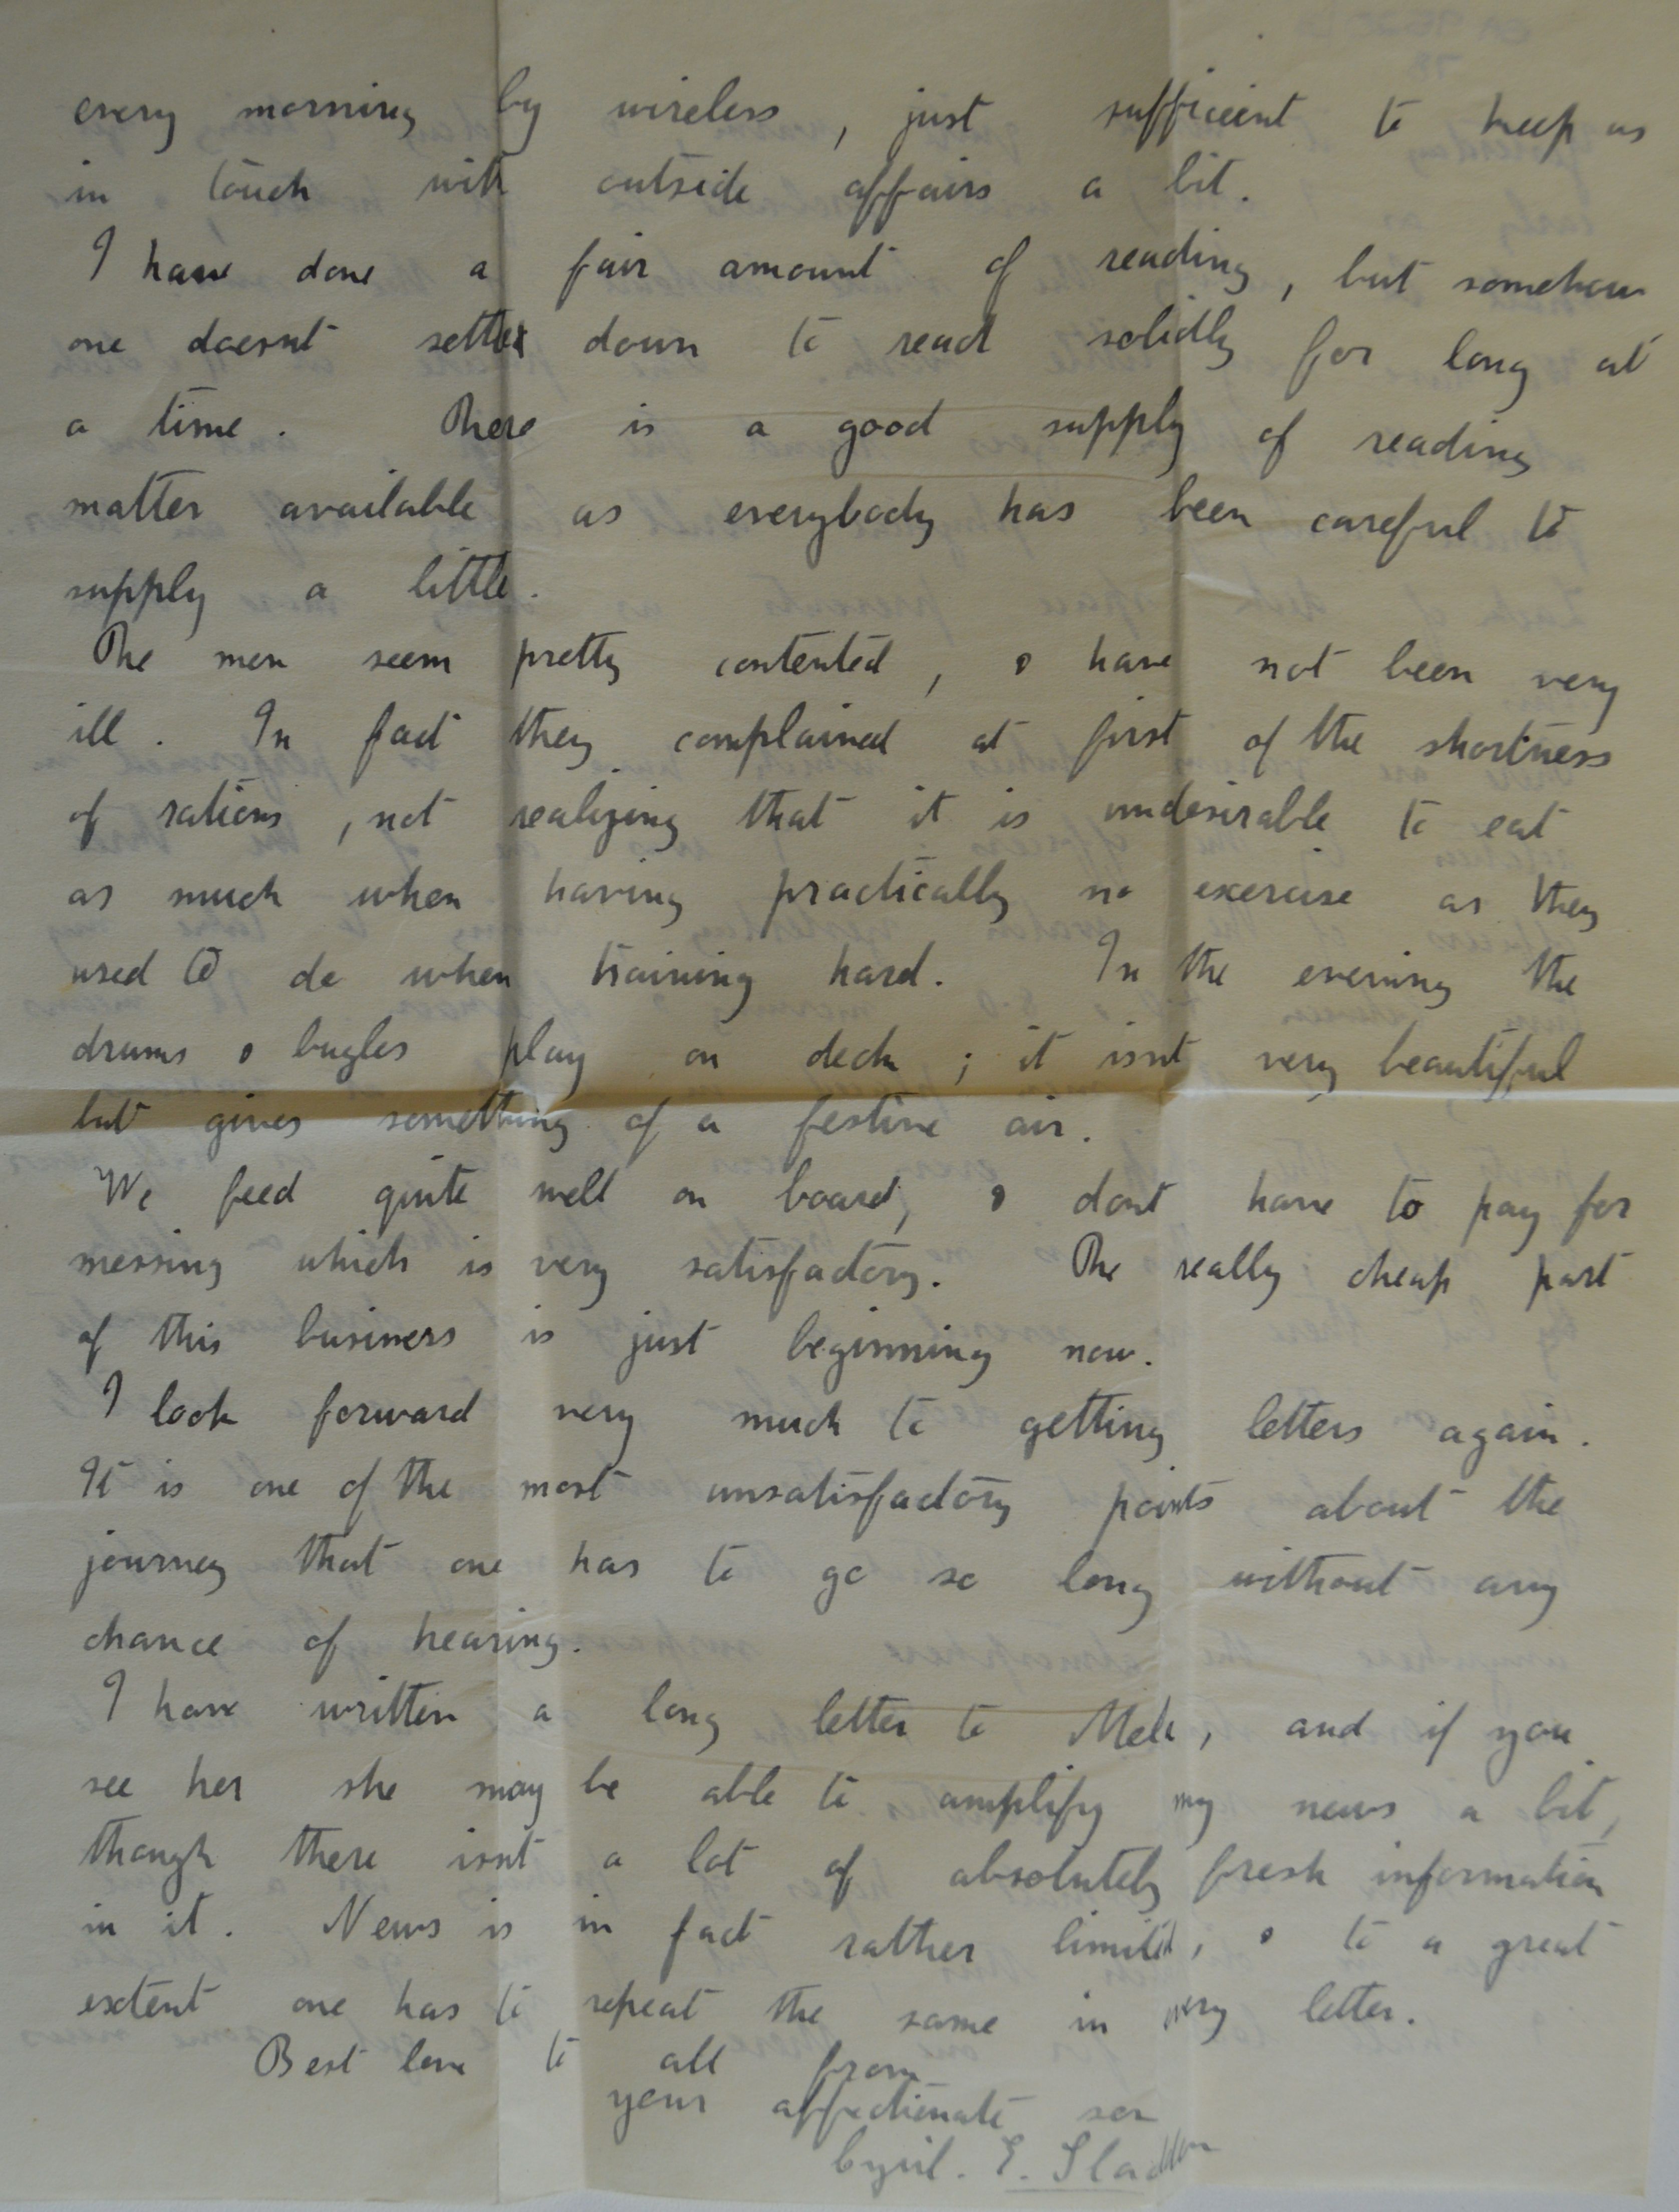 every morning by wireless, just sufficient to keep us
in touch with outside affairs a bit.
I have done a fair amount of reading, but somehow
one doesnt settle down to read solidly for long at
a time. There is a good supply of reading
matter available as everybody has been careful to
supply a little.
The men seem pretty contented, & have not been very
ill. In fact they complained at first of the shortness
of rations, not realizing that it is undesirable to eat
as much when having practically no exercise as they
used to do when training hard. In the evening the
drums & bugles play on deck; it isnt very beautiful
but gives something of a festive air.
We feed quite well on board, & dont have to pay for
messing which is very satisfactory. The really cheap part
of this business is just beginning now.
I look forward very much to getting letters again.
It is one of the most unsatisfactory points about the
journey that one has to go so long without any
chance of hearing.
I have written a long letter to Mela, and if you
see her she may be able to amplify my news a bit,
though there isnt a lot of absolutely fresh information
in it. News is in fact rather limited, & to a great
extent one has to repeat the same in every letter.
Best love to all from
your affectionate son
Cyril. E. Sladden